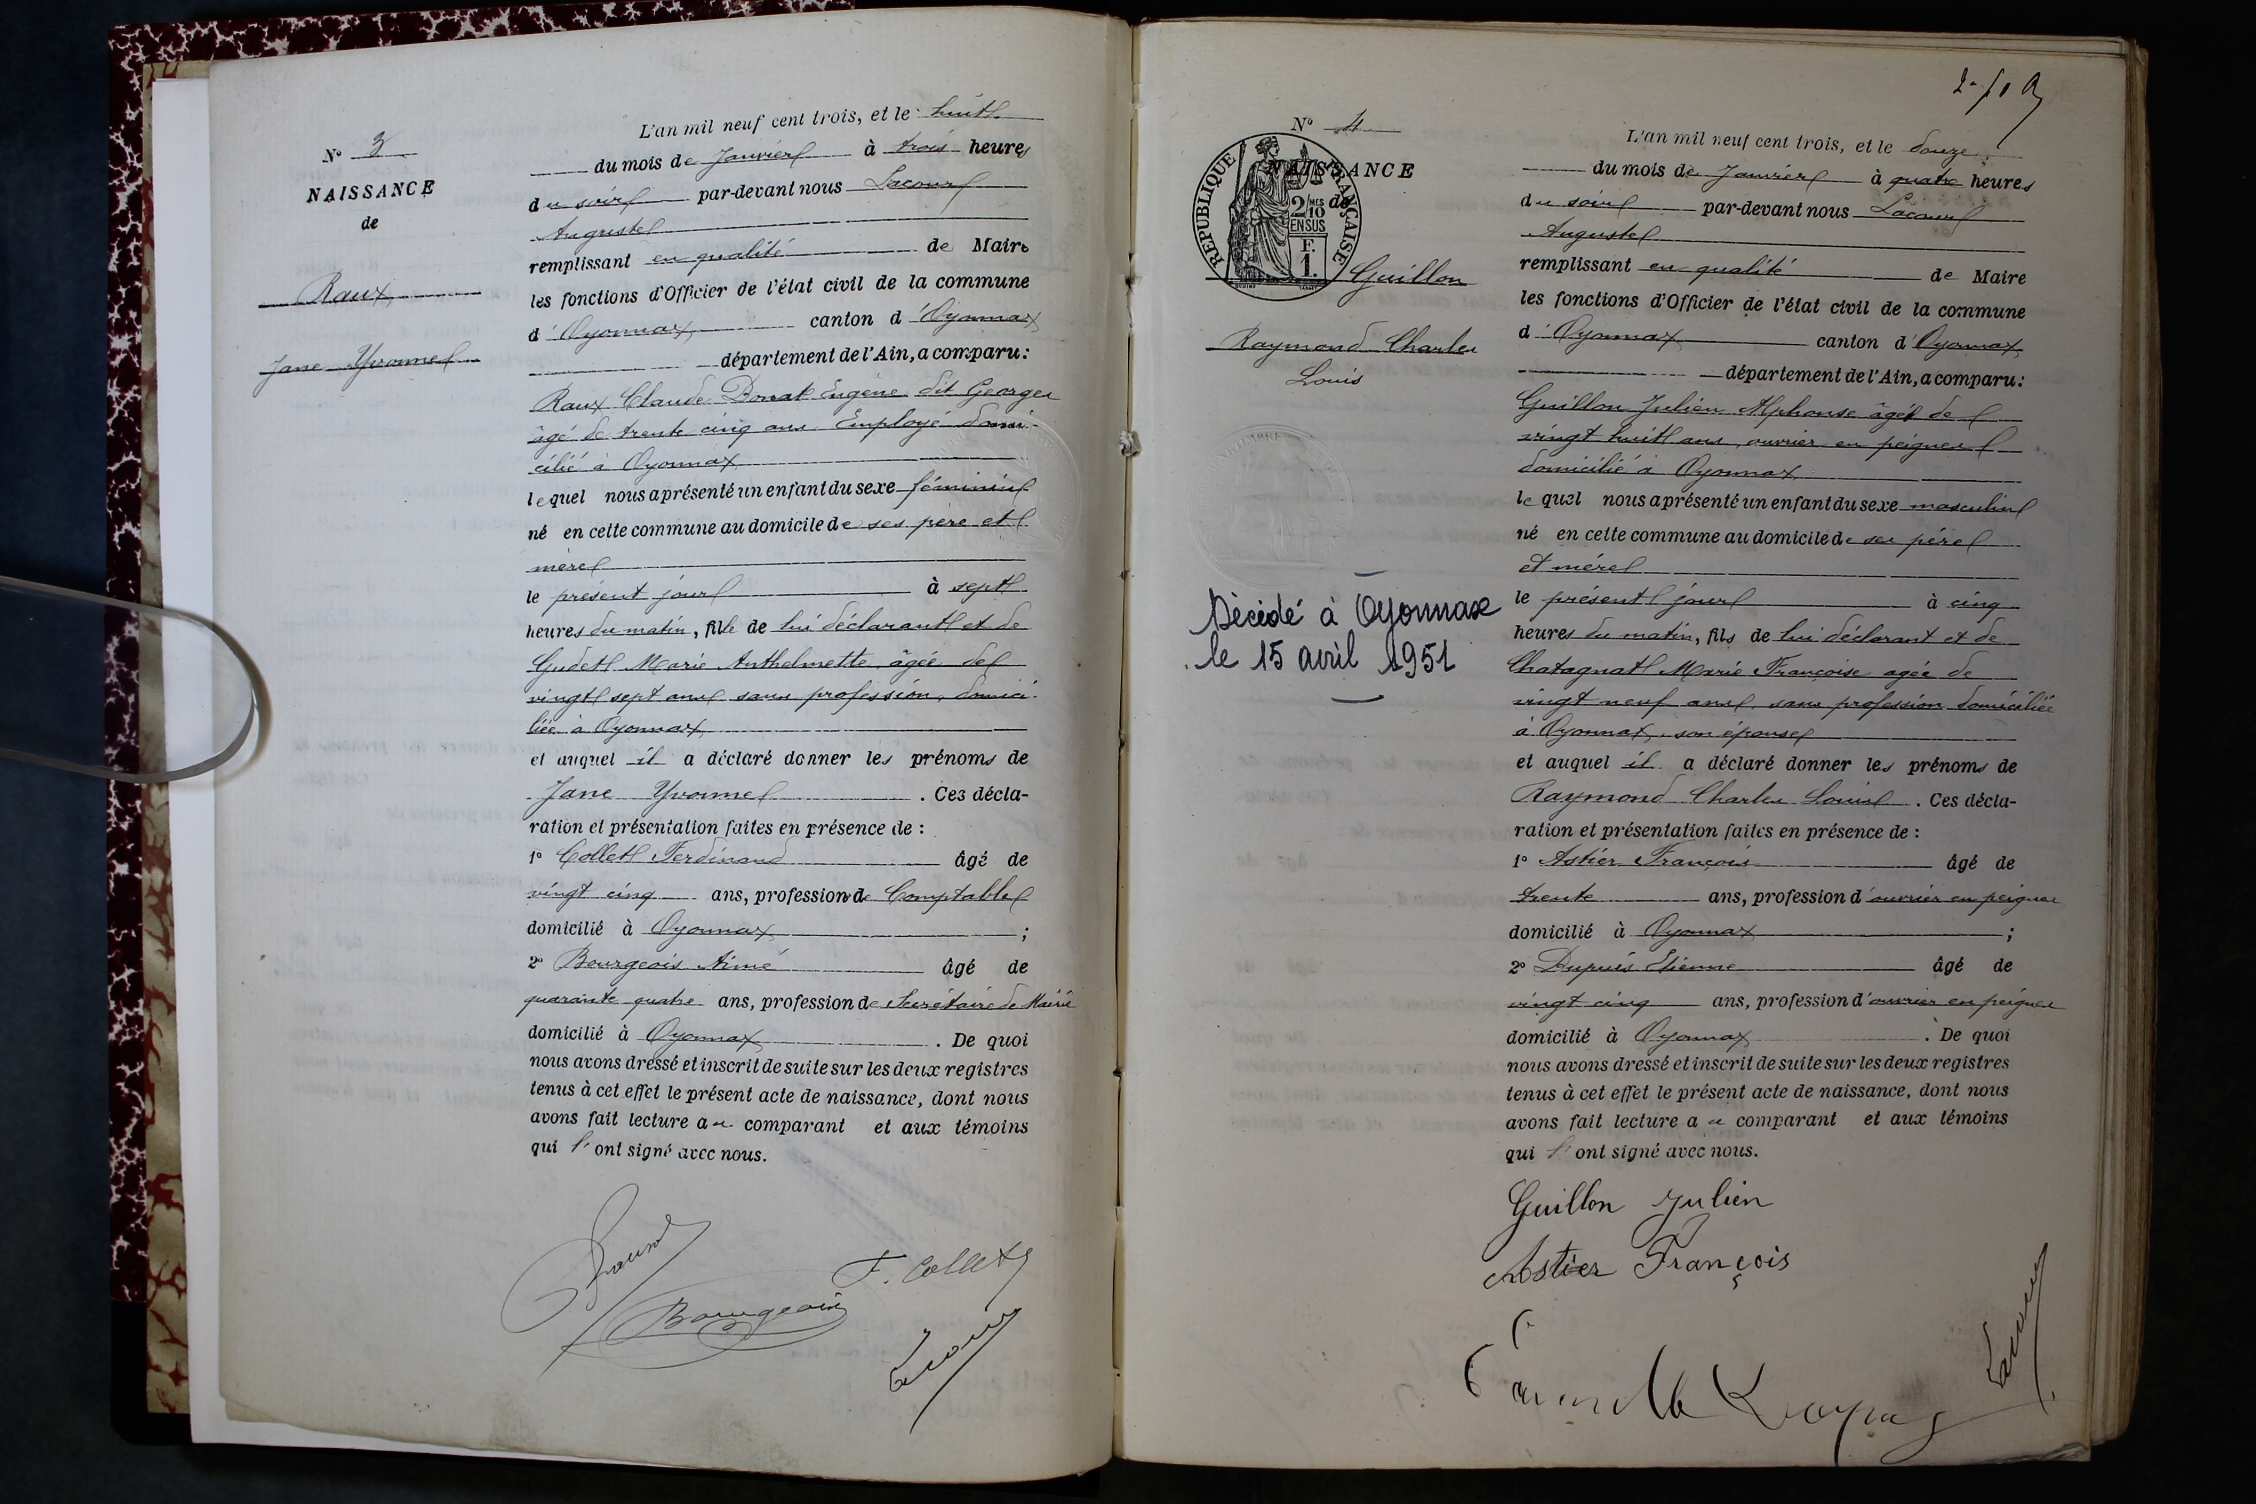 N° 3
NAISSANCE
de
Raux
Jane Yvonne
L'an mil neuf cent trois, et le huit
du mois de Janvier à trois heures
du soir par-devant nous Lacour
Auguste
remplissant en qualité de Maire
les fonctions d'Officier de l'état civil de la commune
d'Oyonnax canton d'Oyonnax
département de l'Ain, a comparu :
Raux Claude Donat Eugène dit Georges
âgé de trente cinq ans Employé domi-
cilié à Oyonnax
lequel nous a présenté un enfant du sexe féminin
né en cette commune au domicile de ses père et
mère
le présent jour à sept
heures du matin, fille de lui déclarant et de
Gudet Marie Anthelmette âgée de
vingt sept ans sans profession, domici-
liée à Oyonnax
et auquel il a déclaré donner les prénoms de
Jane Yvonne . Ces décla-
ration et présentation faites en présence de :
1° Collet Ferdinand âgé de
vingt cinq ans, profession de Comptable
domicilié à Oyonnax ;
2° Bourgeois Aimé âgé de
quarante quatre ans, profession de Secrétaire de Mairie
domicilié à Oyonnax . De quoi
nous avons dressé et inscrit de suite sur les deux registres
tenus à cet effet le présent acte de naissance, dont nous
avons fait lecture au comparant et aux témoins
qui l'ont signé avec nous.
F. Collet
Bourgeois
Lacour
N° 4
NAISSANCE
de
RÉPUBLIQUE FRANÇAISE
2/10 MES
EN SUS
F.
1.
Guillon
Raymond Charles
Louis
Décédé à Oyonnax
le 15 avril 1951
L'an mil neuf cent trois, et le douze
du mois de Janvier à quatre heures
du soir par-devant nous Lacour
Auguste
remplissant en qualité de Maire
les fonctions d'Officier de l'état civil de la commune
d'Oyonnax canton d'Oyonnax
département de l'Ain, a comparu :
Guillon Julien Alphonse âgé de
vingt huit ans, ouvrier en peignes
domicilié à Oyonnax
lequel nous a présenté un enfant du sexe masculin
né en cette commune au domicile de ses père
et mère
le présent jour à cinq
heures du matin, fils de lui déclarant et de
Chatagnat Marie Françoise agée de
vingt neuf ans, sans profession domiciliée
à Oyonnax, son épouse
et auquel il a déclaré donner les prénoms de
Raymond Charles Louis . Ces décla-
ration et présentation faites en présence de :
1° Astier François âgé de
trente ans, profession d'ouvrier en peignes
domicilié à Oyonnax ;
2° Dupuis Etienne âgé de
vingt cinq ans, profession d'ouvrier en peignes
domicilié à Oyonnax . De quoi
nous avons dressé et inscrit de suite sur les deux registres
tenus à cet effet le présent acte de naissance, dont nous
avons fait lecture au comparant et aux témoins
qui l'ont signé avec nous.
Guillon Julien
Astier François
Lacour